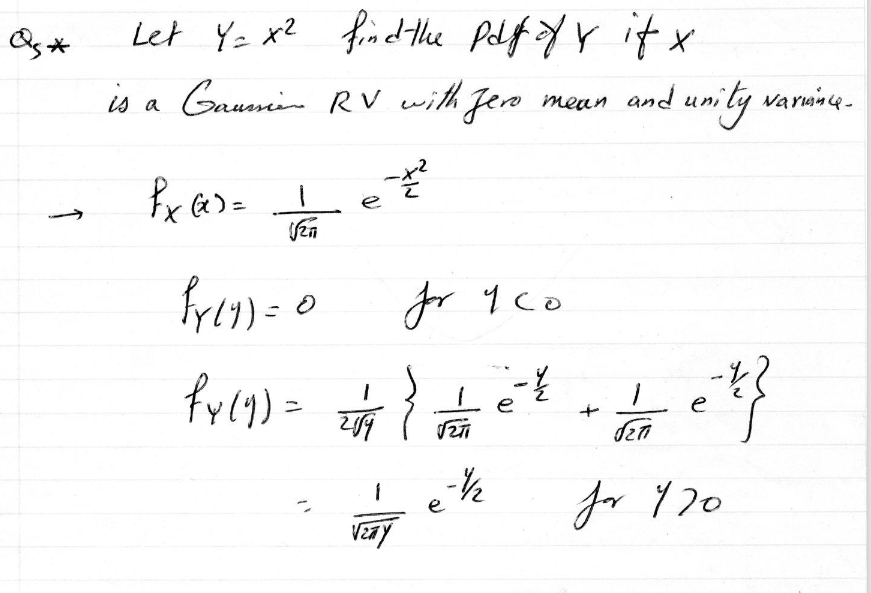 Q5* Let Y = x² find the Pdf of Y if X
is a Gaussian RV with Zero mean and unity variance.
→ fX(x) = 1/√2π e^(-x²/2)
fY(y) = 0 for y < 0
fY(y) = 1/2√y { 1/√2π e^(-y/2) + 1/√2π e^(-y/2) }
= 1/√2πy e^(-y/2) for y > 0